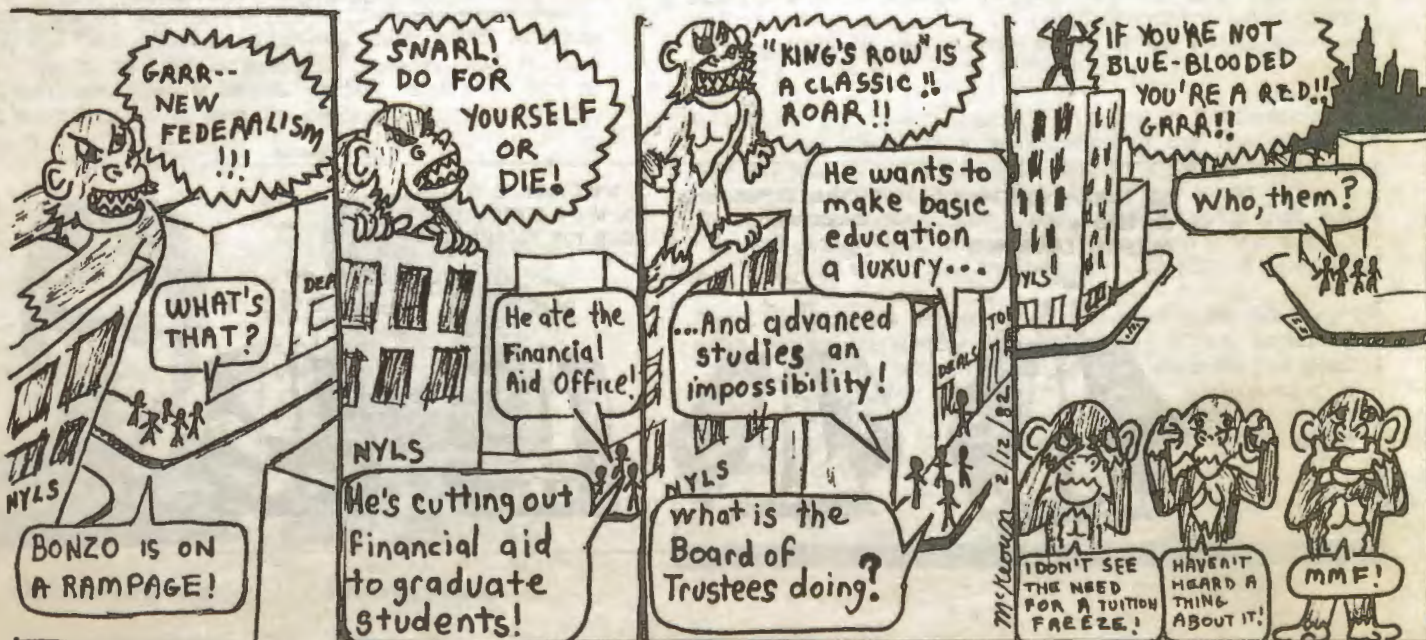 GRRR--
NEW
FEDERALISM
!!!
WHAT'S
THAT?
DEA
NYLS
BONZO IS ON
A RAMPAGE!
SNARL!
DO FOR
YOURSELF
OR
DIE!
He ate the
Financial
Aid Office!
NYLS
He's cutting out
financial aid
to graduate
students!
"KING'S ROW" IS
A CLASSIC!!
ROAR!!
He wants to
make basic
education
a luxury...
...And advanced
studies an
impossibility!
DEALS
NYLS
what is the
Board of
Trustees doing?
McKeown 2/12/82
IF YOU'RE NOT
BLUE-BLOODED
YOU'RE A RED!!
GRRR!!
Who, them?
NYLS
I DON'T SEE
THE NEED
FOR A TUITION
FREEZE!
HAVEN'T
HEARD A
THING
ABOUT IT!
MMF!